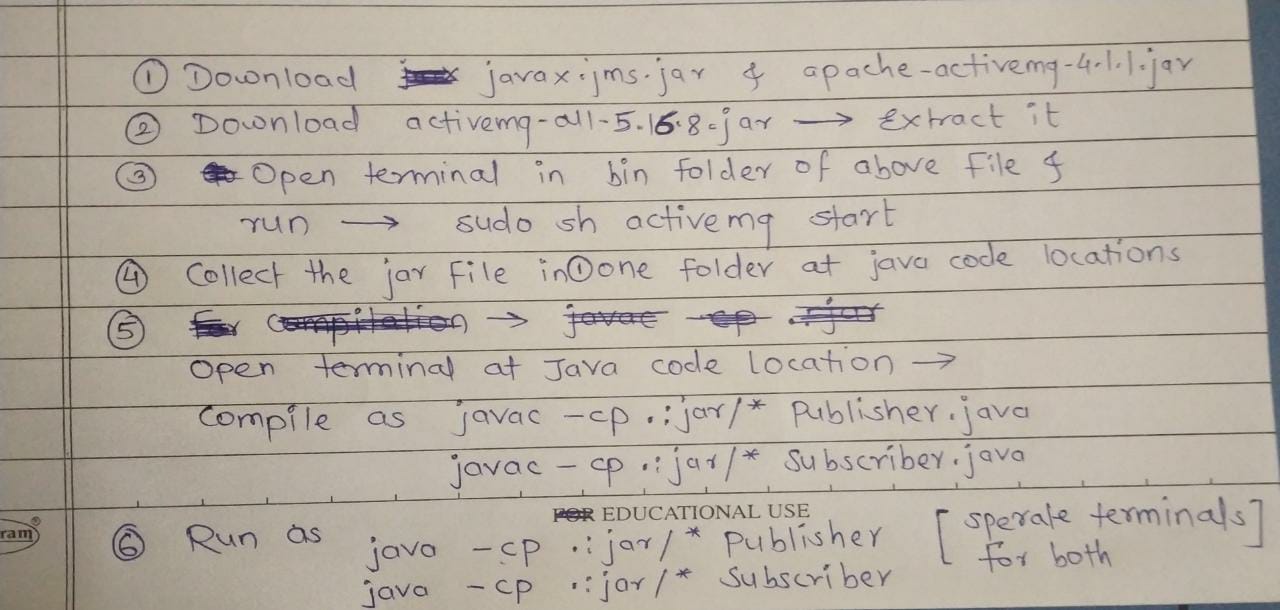 ① Download javax.jms.jar & apache-activemq-4.1.1.jar
② Download activemq-all-5.16.8.jar → Extract it
③ Open terminal in bin folder of above file &
run → sudo sh activemq start
④ Collect the jar file in ① one folder at java code locations
⑤ For compilation → javac -cp .:jar
Open terminal at Java code location →
Compile as javac -cp .:jar/* Publisher.java
javac -cp .:jar/* Subscriber.java
FOR EDUCATIONAL USE
ram®
⑥ Run as java -cp .:jar/* Publisher [sperate terminals]
java -cp .:jar/* Subscriber for both